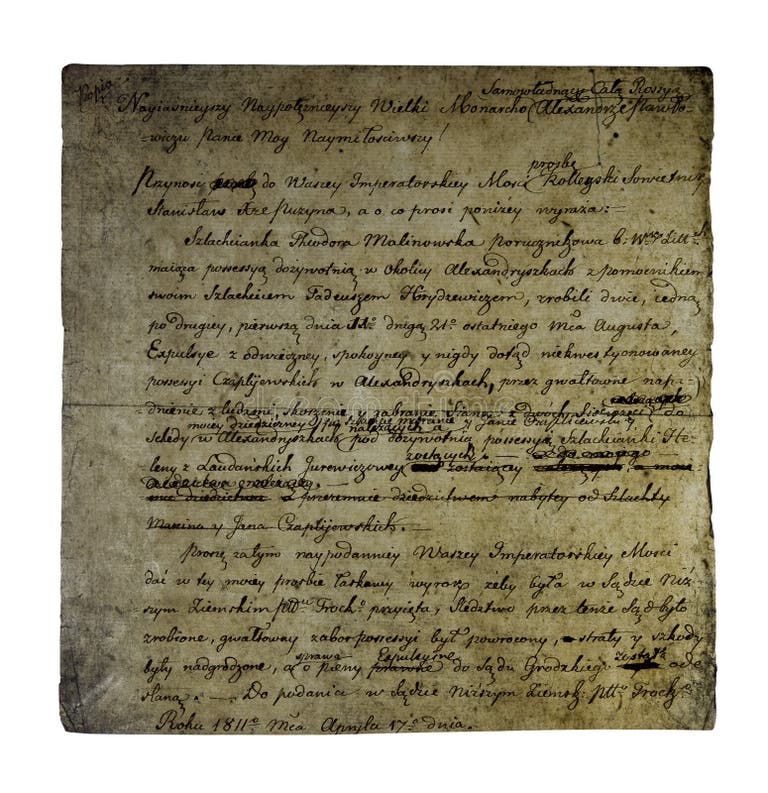 Kopia
Samowładnący Całą Rossyą
Nayiaśnieyszy Naypotężnieyszy Wielki Monarcho Alexandrze Pawło-
-wiczu Panie Moy Naymiłościwszy!
prośbę
Przynosi do Waszey Imperatorskiey Mości Kolleyski Sowietnik
Stanisław Puzyna, a o co prosi poniżey wyraża: -
Szlachcianka Theodora Malinowska Porucznikowa b: W° Litt
maiąca possessyą dożywotnią w Okolicy Alexandryszkach z pomocnikiem
swoim Szlachcicem Tadeuszem Hrydzewiczem, zrobili dwie, iedną
po drugiey, pierwszą dnia drugą 21° ostatniego Mca Augusta,
Expulsye z odwieczney, spokoyney y nigdy dotąd niekwestyonowaney
possesyi Czaplijewskich w Alexandryszkach, przez gwałtowne napa-
dnienie z ludźmi, skoszenie y zabranie Siana z dwóch do
moiey dziedziczney y Jana Czaplijewskiego
należących a
Schedy w Alexandryszkach pod dożywotnią possessyą Szlachcianki He-
zostających
leny z Laudańskich Jurewiczowey zostaiącey
z przezemnie dziedzictwem nabytey od Szlachty
Marcina y Jana Czaplijewskich. -
Proszę zatym naypodanniey Waszey Imperatorskiey Mości
dać w tey moiey prośbie łaskawy wyrok, żeby była w Sądzie Niż-
szym Ziemskim Pttu Trock° przyięta, Śledztwo przez tenże Sąd było
zrobione, gwałtowny zabor possessyi był powrocony, straty y szkody
sprawa Expulsyine
były nadgrodzone, a o pieny do Sądu Grodzkiego ode
słaną. - Do podania w Sądzie Niższym Ziemsk: Pttu Trock°
Roku 1811° Mca Apryla 17° dnia.